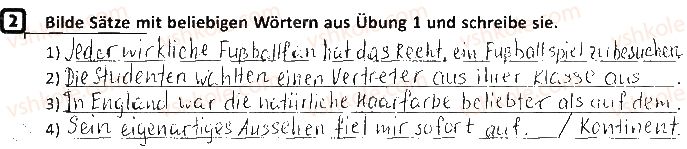 2 Bilde Sätze mit beliebigen Wörtern aus Übung 1 und schreibe sie.
1) Jeder wirkliche Fußballfan hat das Recht, ein Fußballspiel zu besuchen
2) Die Studenten wählten einen Vertreter aus ihrer Klasse aus.
3) In England war die natürliche Haarfarbe beliebter als auf dem.
4) Sein eigenartiges Aussehen fiel mir sofort auf. / Kontinent.